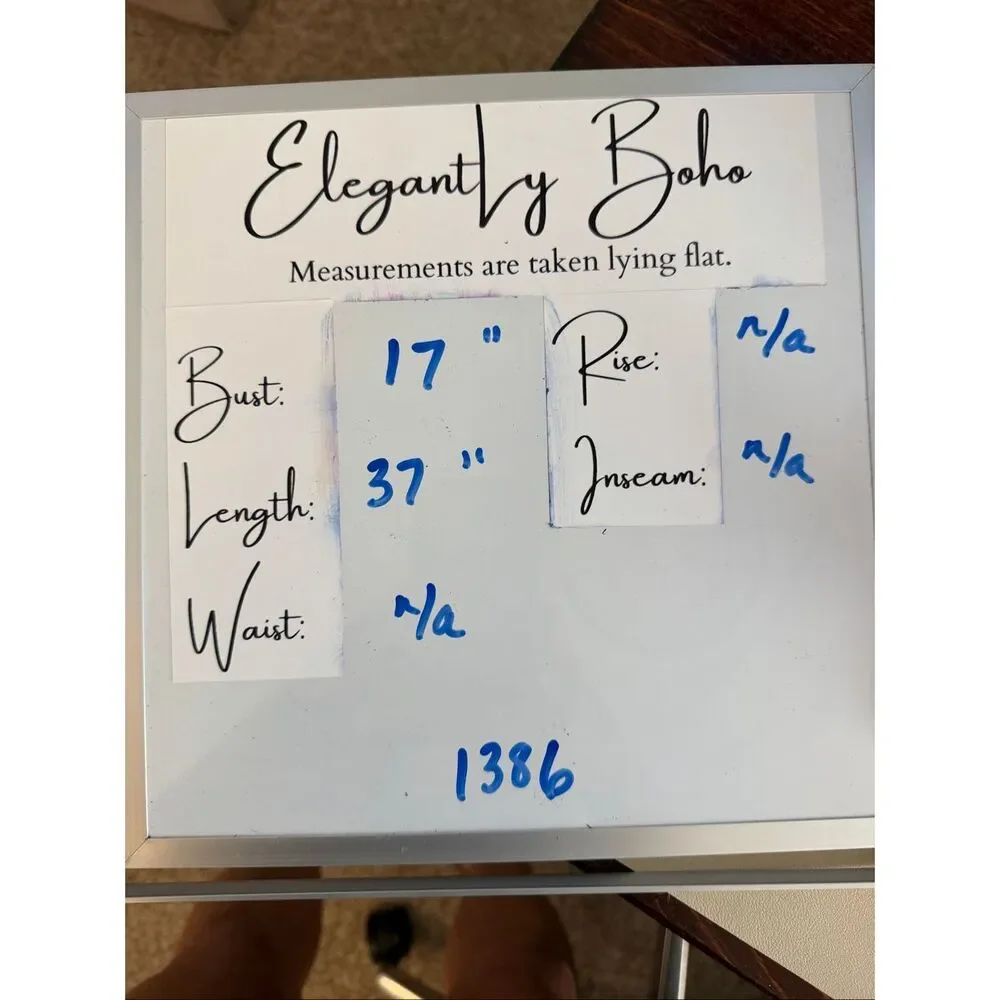 Elegantly Boho
Measurements are taken lying flat.
Bust: 17 "
Length: 37 "
Waist: n/a
Rise: n/a
Inseam: n/a
1386